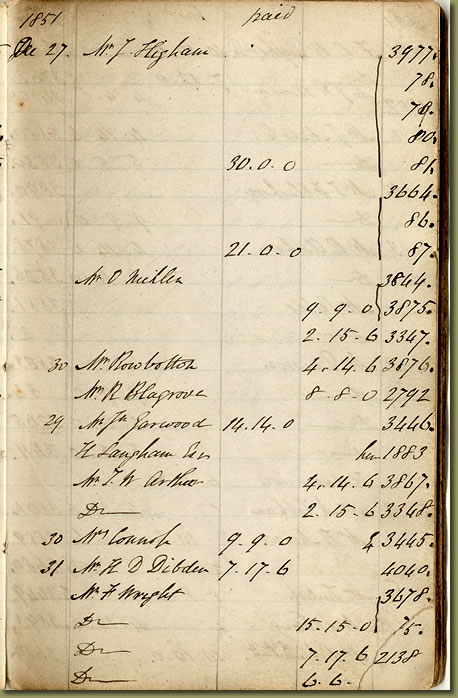 1851 paid
Dec 27. Mr J. Higham 3977.
78.
79.
80.
30.0.0 81.
3664.
86.
21.0.0 87.
Mr O 3844.
9.9.0 3875.
2.15.6 3347.
30 Mr Rowbottom 4.14.6 3876.
Mr R Blagrove 8-8-0 2792
29 Mr Jn Garwood 14.14.0 3446.
H Langham Esq 1883
Mr J. W Arthur 4.14.6 3867.
Do 2.15.6 3348.
30 Mrs Connor 9.9.0 3445.
31 Mr H D Dibden 7.17.6 4040.
Mr F Wright 3678.
Do 15.15.0 75.
Do 7.17.6 2138
Do 6.6.